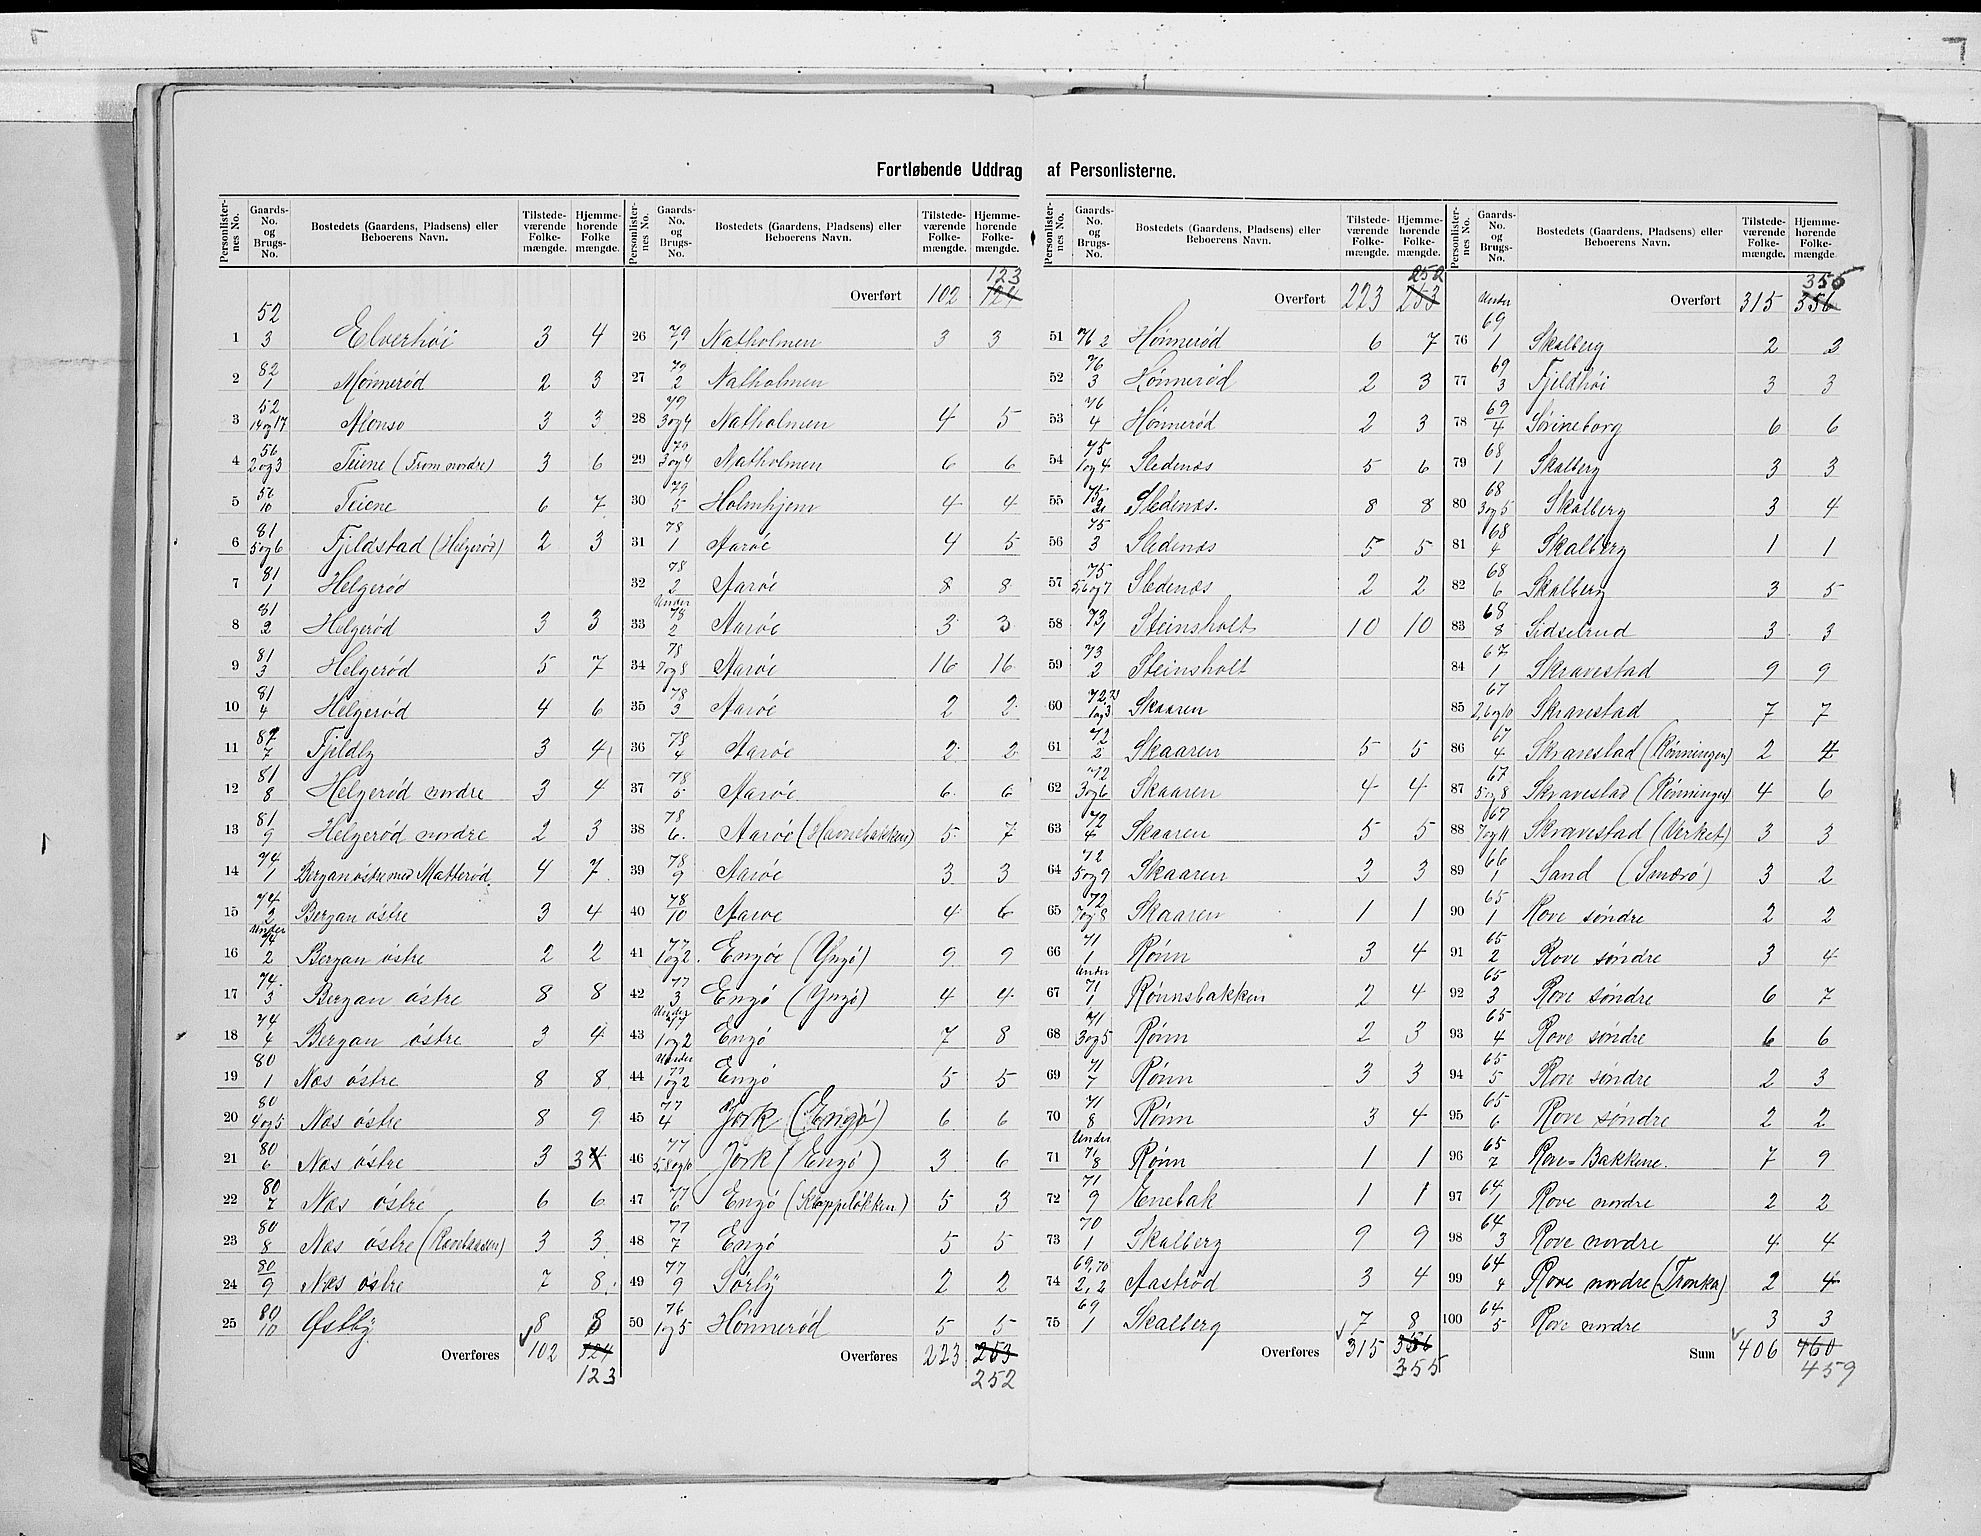 Fortløbende Uddrag af Personlisterne.
Personlisternes No. Gaards-No. og Brugs-No. Bostedets (Gaardens, Pladsens) eller Beboerens Navn. Tilstedeværende Folkemængde. Hjemmehørende Folkemængde.
1 52 3 Elverhöi 3 4
2 82 1 Mönnerød 2 3
3 52 14og17 Monso 3 3
4 56 2og3 Teiene (From nordre) 3 6
5 56 10 Teiene 6 7
6 81 5og6 Fjeldstad (Helgerød) 2 3
7 81 1 Helgerød
8 81 2 Helgerød 3 3
9 81 3 Helgerød 5 7
10 81 4 Helgerød 4 6
11 7 Fjeldly 3 4
12 81 8 Helgerød nordre 3 4
13 81 9 Helgerød nordre 2 3
14 74 1 Bergan östre med Matterød 4 7
15 74 2 Bergan östre 3 4
16 Under 74 2 Bergan östre 2 2
17 74 3 Bergan östre 8 8
18 74 4 Bergan östre 3 4
19 80 1 Næs östre 8 8
20 80 4og5 Næs östre 8 9
21 80 6 Næs östre 3 3 4
22 80 7 Næs östre 6 6
23 80 8 Næs östre 3 3
24 80 9 Næs östre 7 8
25 80 10 Østby 8 8
Overføres 102 124
123
Personlisternes No. Gaards-No. og Brugs-No. Bostedets (Gaardens, Pladsens) eller Beboerens Navn. Tilstedeværende Folkemængde. Hjemmehørende Folkemængde.
123
Overført 102 124
26 79 1 Natholmen 3 3
27 79 2 Natholmen
28 79 3og4 Natholmen 4 5
29 79 3og4 Natholmen 6 6
30 79 5 Holmhjem 4 4
31 78 1 Aaröe 4 5
32 78 2 Aaröe 8 8
33 Under 78 2 Aaröe 3 3
34 78 7og8 Aaröe 16 16
35 78 3 Aaröe 2 2
36 78 4 Aaröe 2 2
37 78 5 Aaröe 6 6
38 78 6 Aaröe (Havnebakken) 5 7
39 78 9 Aaröe 3 3
40 78 10 Aaröe 4 6
41 77 1og2 Engöe (Yngö) 9 9
42 77 3 Engö (Yngö) 4 4
43 Under 77 1og2 Engö 7 8
44 Under 77 1og2 Engö 5 5
45 77 4 Jork (Engö) 6 6
46 77 5,8og6 Jork (Engö) 3 6
47 77 6 Engö (Kloppeløkken) 5 3
48 77 7 Engö 5 5
49 77 9 Sörby 2 2
50 76 1og5 Hönnerød 5 5
Overføres 223 253
252
Personlisternes No. Gaards-No. og Brugs-No. Bostedets (Gaardens, Pladsens) eller Beboerens Navn. Tilstedeværende Folkemængde. Hjemmehørende Folkemængde.
252
Overført 223 253
51 76 2 Hönnerød 6 7
52 76 3 Hönnerød 2 3
53 76 4 Hönnerød 2 3
54 75 1og4 Sledenæs 5 6
55 75 2 Sledenæs. 8 8
56 75 3 Sledenæs 5 5
57 75 5,6og7 Sledenæs 2 2
58 73 1 Steinsholt 10 10
59 73 2 Steinsholt
60 72 1og3 Skaaren
61 72 2 Skaaren 5 5
62 72 3og6 Skaaren 4 4
63 72 4 Skaaren 5 5
64 72 5og9 Skaaren 3 3
65 72 7og8 Skaaren 1 1
66 71 1 Rönn 3 4
67 Under 71 1 Rönnsbakken 2 4
68 71 3og5 Rönn 2 3
69 71 7 Rönn 3 3
70 71 8 Rönn 3 4
71 Under 71 8 Rönn 1 1
72 71 9 Enebak 1 1
73 70 1 Skalberg 9 9
74 69,70 2,2 Aaströd 3 4
75 69 1 Skalberg 7 8
Overføres 315 356
355
Personlisternes No. Gaards-No. og Brugs-No. Bostedets (Gaardens, Pladsens) eller Beboerens Navn. Tilstedeværende Folkemængde. Hjemmehørende Folkemængde.
355
Overført 315 356
76 Under 69 1 Skalberg 2 3
77 69 3 Fjeldhöi 3 3
78 69 4 Sörineborg 6 6
79 68 1 Skalberg 3 3
80 68 3og5 Skalberg 3 4
81 68 4 Skalberg 1 1
82 68 6 Skalberg 3 5
83 68 8 Sidselrud 3 3
84 67 1 Skravestad 9 9
85 67 2,6og10 Skravestad 7 7
86 67 4 Skravestad (Rönningen) 2 4
87 67 5og8 Skravestad (Rönningen) 4 6
88 67 7og11 Skravestad (Virket) 3 3
89 66 1 Sand (Smærö) 3 2
90 65 1 Rove söndre 2 2
91 65 2 Rove söndre 3 4
92 65 3 Rove söndre 6 7
93 65 4 Rove söndre 6 6
94 65 5 Rove söndre 2 3
95 65 6 Rove söndre 2 2
96 65 7 Rove-Bakkene. 7 9
97 64 1 Rove nordre 2 2
98 64 3 Rove nordre 4 4
99 64 4 Rove nordre (Tronka) 2 4
100 64 5 Rove nordre 3 3
Sum 406 460
459